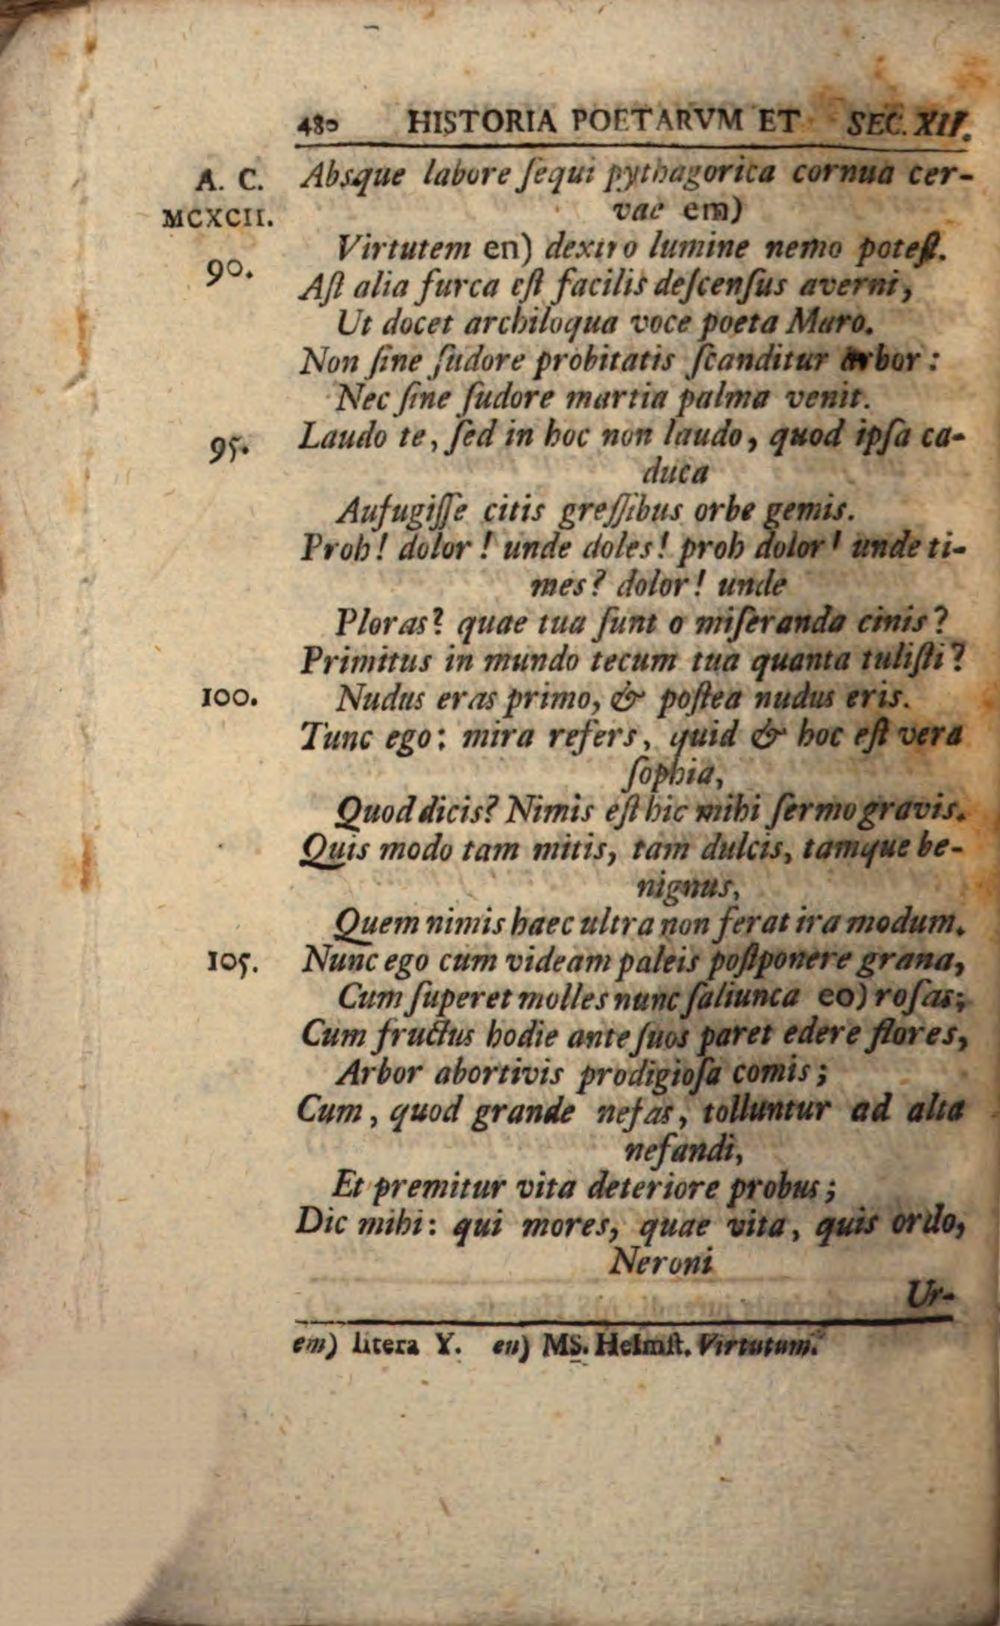 480 HISTORIA POETARVM ET SEC. XII.
A. C. Absque labore ſequi pythagorica cornua cer-
MCXCII. vae em)
Virtutem en) dextro lumine nemo poteſt.
90. Aſt alia furca eſt facilis deſcenſus averni,
Ut docet archiloqua voce poeta Maro.
Non ſine ſudore probitatis ſcanditur arbor:
Nec ſine ſudore martia palma venit.
95. Laudo te, ſed in hoc non laudo, quod ipſa ca-
duca
Aufugiſſe citis greſſibus orbe gemis.
Proh! dolor! unde doles! proh dolor! unde ti-
mes? dolor! unde
Ploras? quae tua ſunt o miſeranda cinis?
Primitus in mundo tecum tua quanta tuliſti?
100. Nudus eras primo, & poſtea nudus eris.
Tunc ego: mira refers, quid & hoc eſt vera
ſophia,
Quod dicis? Nimis eſt hic mihi ſermo gravis.
Quis modo tam mitis, tam dulcis, tamque be-
nignus,
Quem nimis haec ultra non ferat ira modum.
105. Nunc ego cum videam paleis poſtponere grana,
Cum ſuperet molles nunc ſaliunca eo) roſas;
Cum fructus hodie ante ſuos paret edere flores,
Arbor abortivis prodigioſa comis;
Cum, quod grande nefas, tolluntur ad alta
nefandi,
Et premitur vita deteriore probus;
Dic mihi: qui mores, quae vita, quis ordo,
Neroni
Ur-
em) litera Y. en) MS. Helmſt. Virtutum.